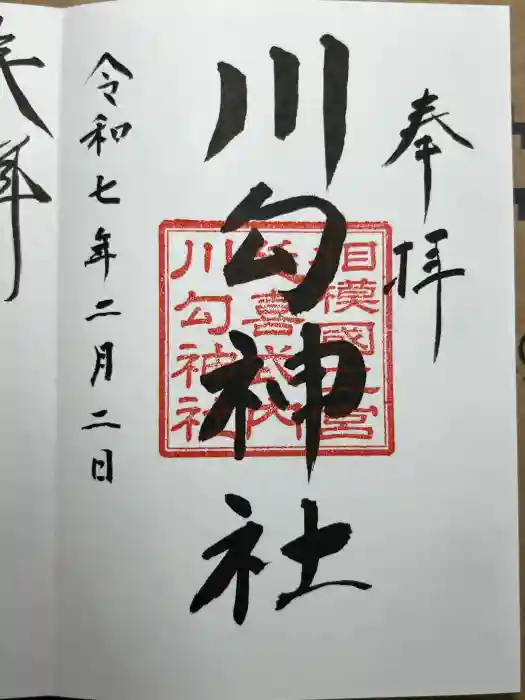 奉拝
川勾神社
相模國二宮
延喜式内
川勾神社
令和七年二月二日